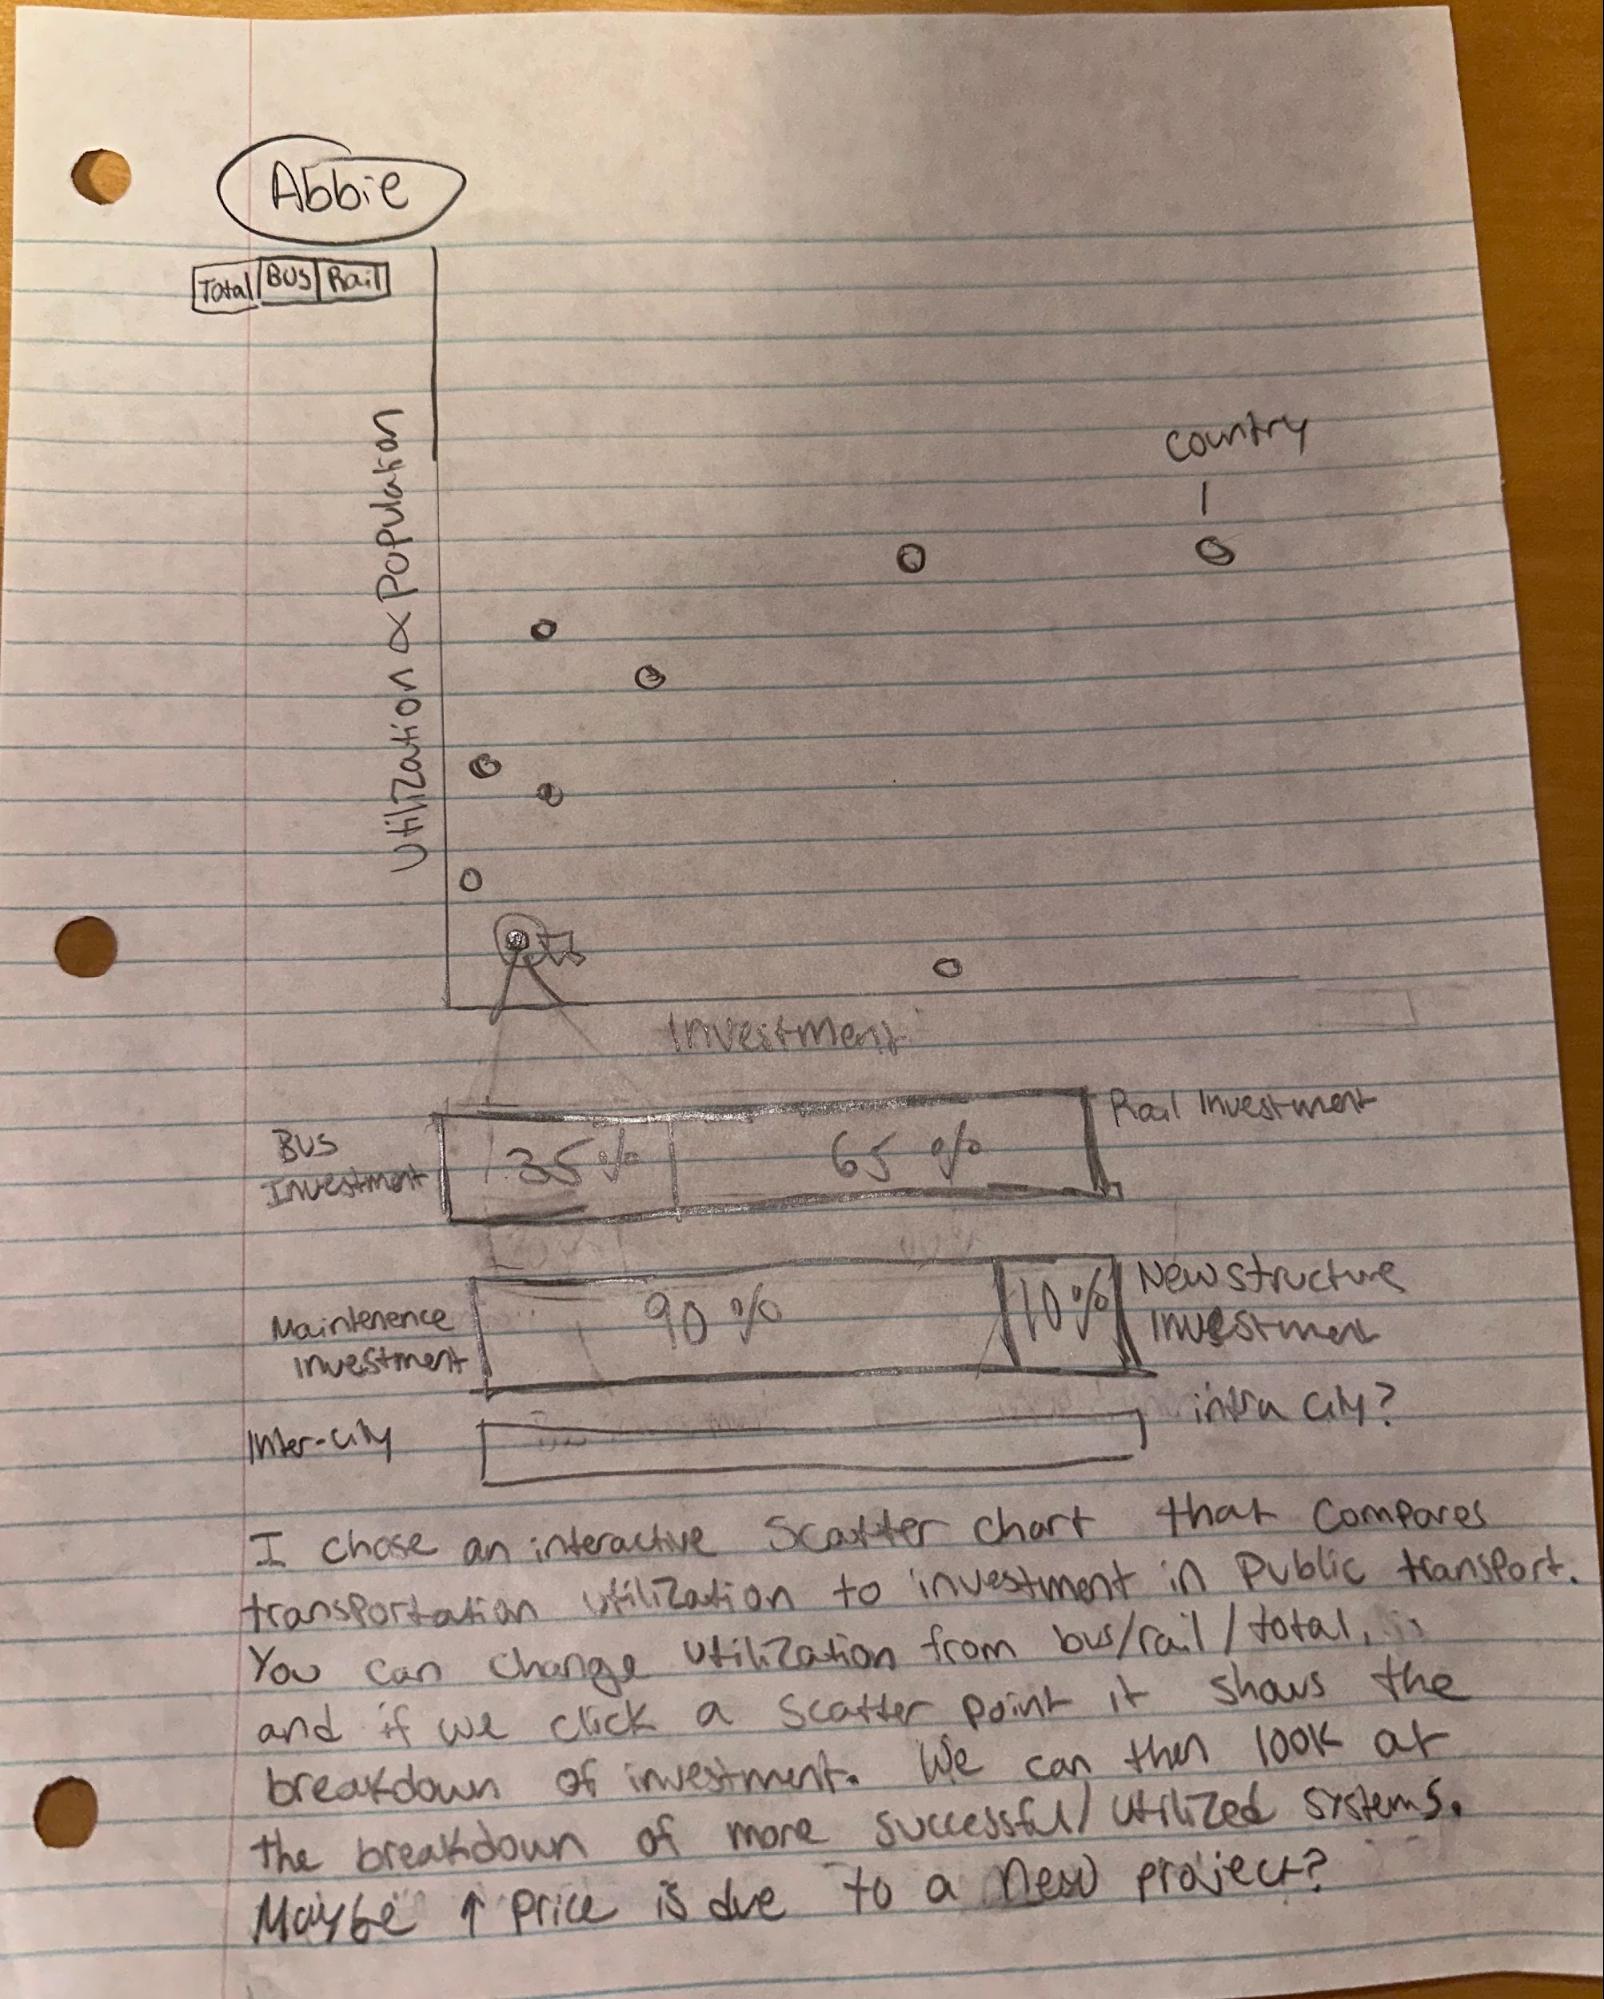 Abbie
Total BUS Rail
Utilization ∝ Population
country
Investment
BUS Investment
35%
65%
Rail Investment
Maintenence investment
90%
10%
New structure Investment
Inter-city
intra city?
I chose an interactive Scatter chart that compares
transportation utilization to investment in Public transport.
You can change utilization from bus/rail/total,
and if we click a scatter point it shows the
breakdown of investment. We can then look at
the breakdown of more successful/utilized systems.
Maybe ↑ price is due to a new project?